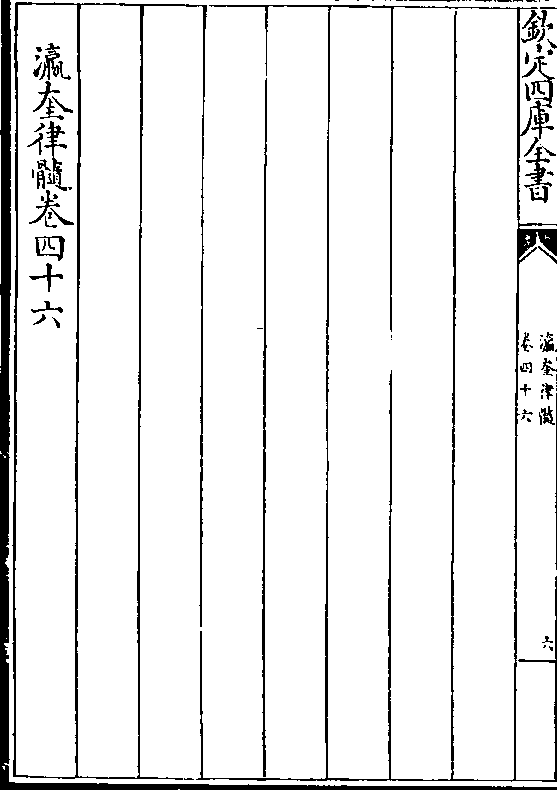 欽定四庫全書
瀛奎律髓
卷四十六
六
瀛奎律髓卷四十六